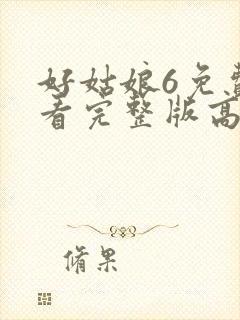 好姑娘6免费
看完整版高
脩果